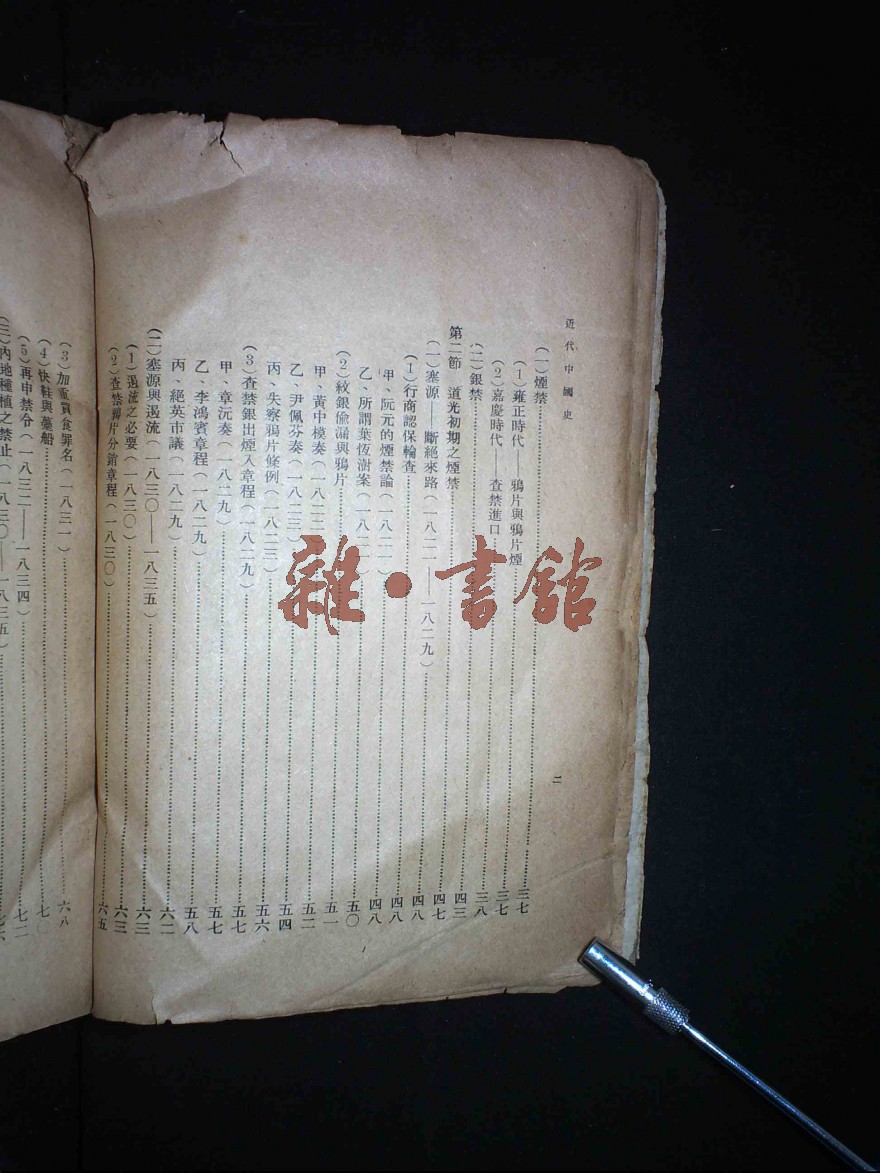 近代中國史
二
(一)煙禁……三七
(1)雍正時代——鴉片與鴉片煙……三七
(2)嘉慶時代——查禁進口……三八
(二)銀禁……四三
第二節 道光初期之煙禁……四七
(一)塞源——斷絕來路(一八二一——一八二九)……四八
(1)行商認保輪查……四八
甲、阮元的煙禁論(一八二一)……四八
乙、所謂葉恆澍案(一八二一)……五〇
(2)紋銀偷漏與鴉片……五一
甲、黃中模奏(一八二二)……五二
乙、尹佩芬奏(一八二三)……五四
丙、失察鴉片條例(一八二三)……五六
(3)查禁銀出煙入章程(一八二九)……五七
甲、章沅奏(一八二九)……五七
乙、李鴻賓章程(一八二九)……五八
丙、絕英市議(一八二九)……六二
(二)塞源與遏流(一八三〇——一八三五)……六三
(1)遏流之必要(一八三〇)……六三
(2)查禁鴉片分銷章程(一八三〇)……六五
(3)加重買食罪名(一八三一)……六八
(4)快鞋與躉船……七〇
(5)再申禁令(一八三二——一八三四)……七二
(三)內地種植之禁止(一八三〇——一八三五)……
雜·書館